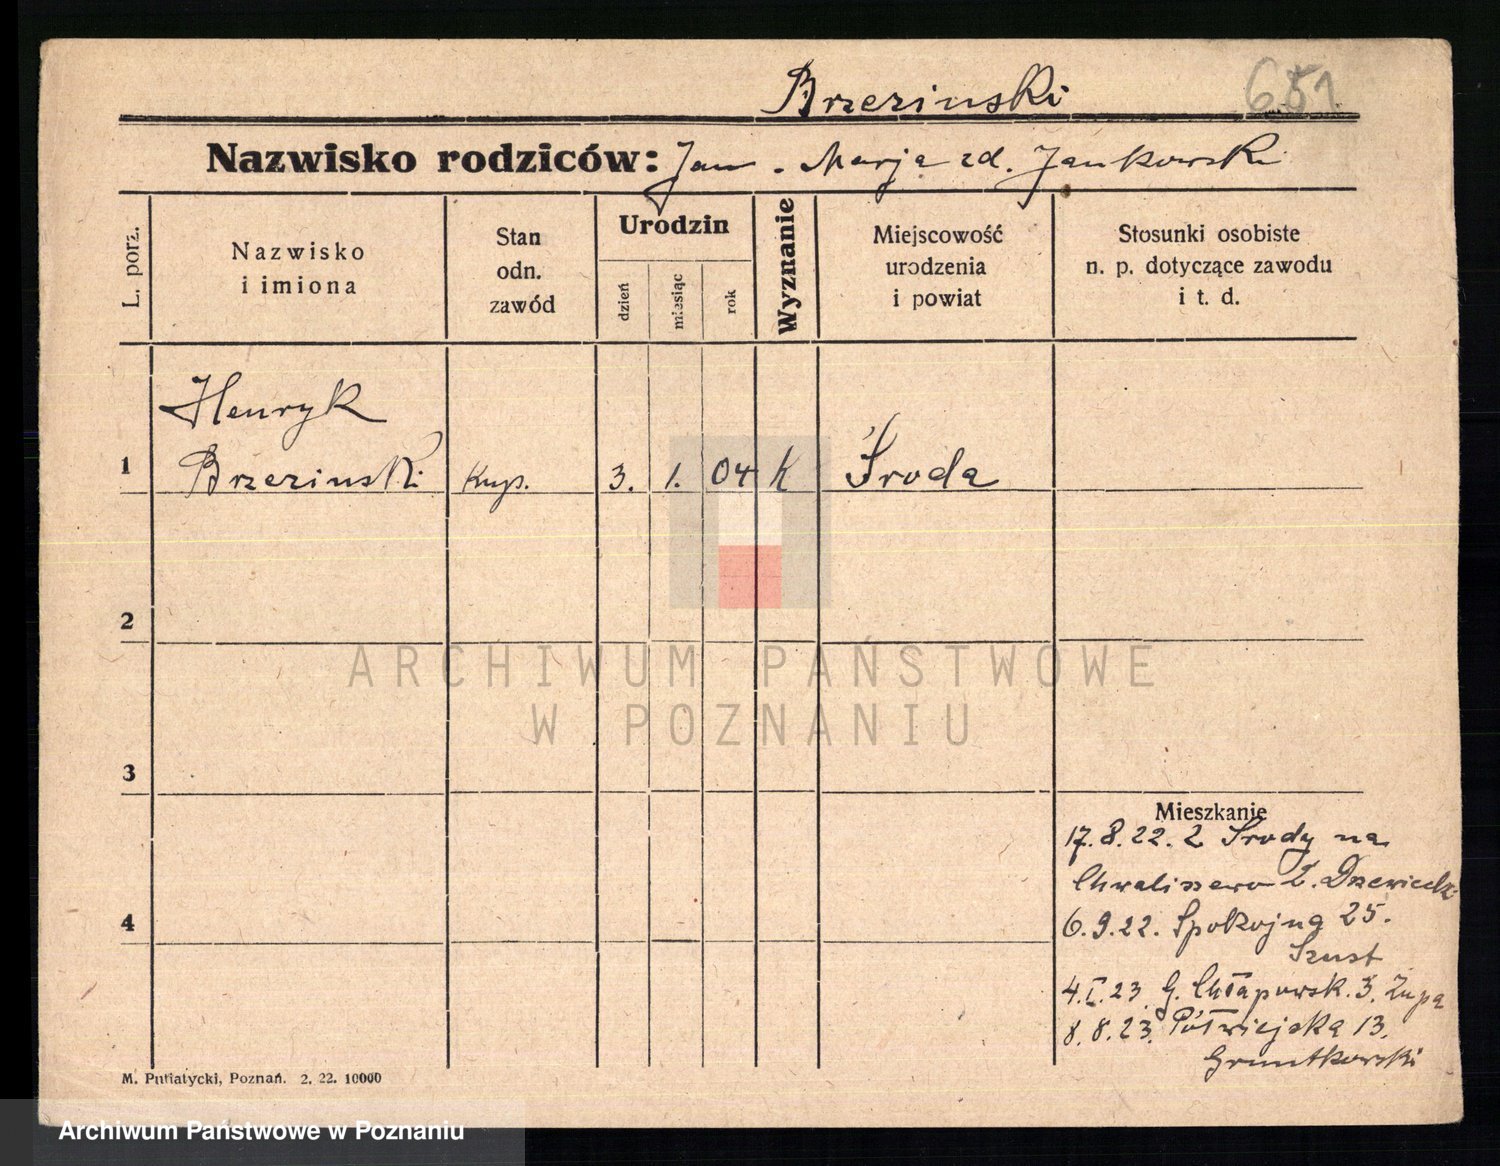 Brzezinski 651
Nazwisko rodziców: Jan - Marja zd. Jankowski
L. porz.
Nazwisko
i imiona
Stan
odn.
zawód
Urodzin
dzień
miesiąc
rok
Wyznanie
Miejscowość
urodzenia
i powiat
Stosunki osobiste
n. p. dotyczące zawodu
i t. d.
Henryk
1 Brzezinski Kup. 3. 1. 04 K Środa
2
ARCHIWUM PAŃSTWOWE
W POZNANIU
3
Mieszkanie
17.8.22. z Środy na
Chwaliszewo
4
6.9.22. Spokojna 25.
Szust
4.I.23. G. Chłapowsk. 3. Żupa
8.8.23. Półwiejska 13.
Gruntkowski
M. Putiatycki, Poznań. 2. 22. 10000
Archiwum Państwowe w Poznaniu